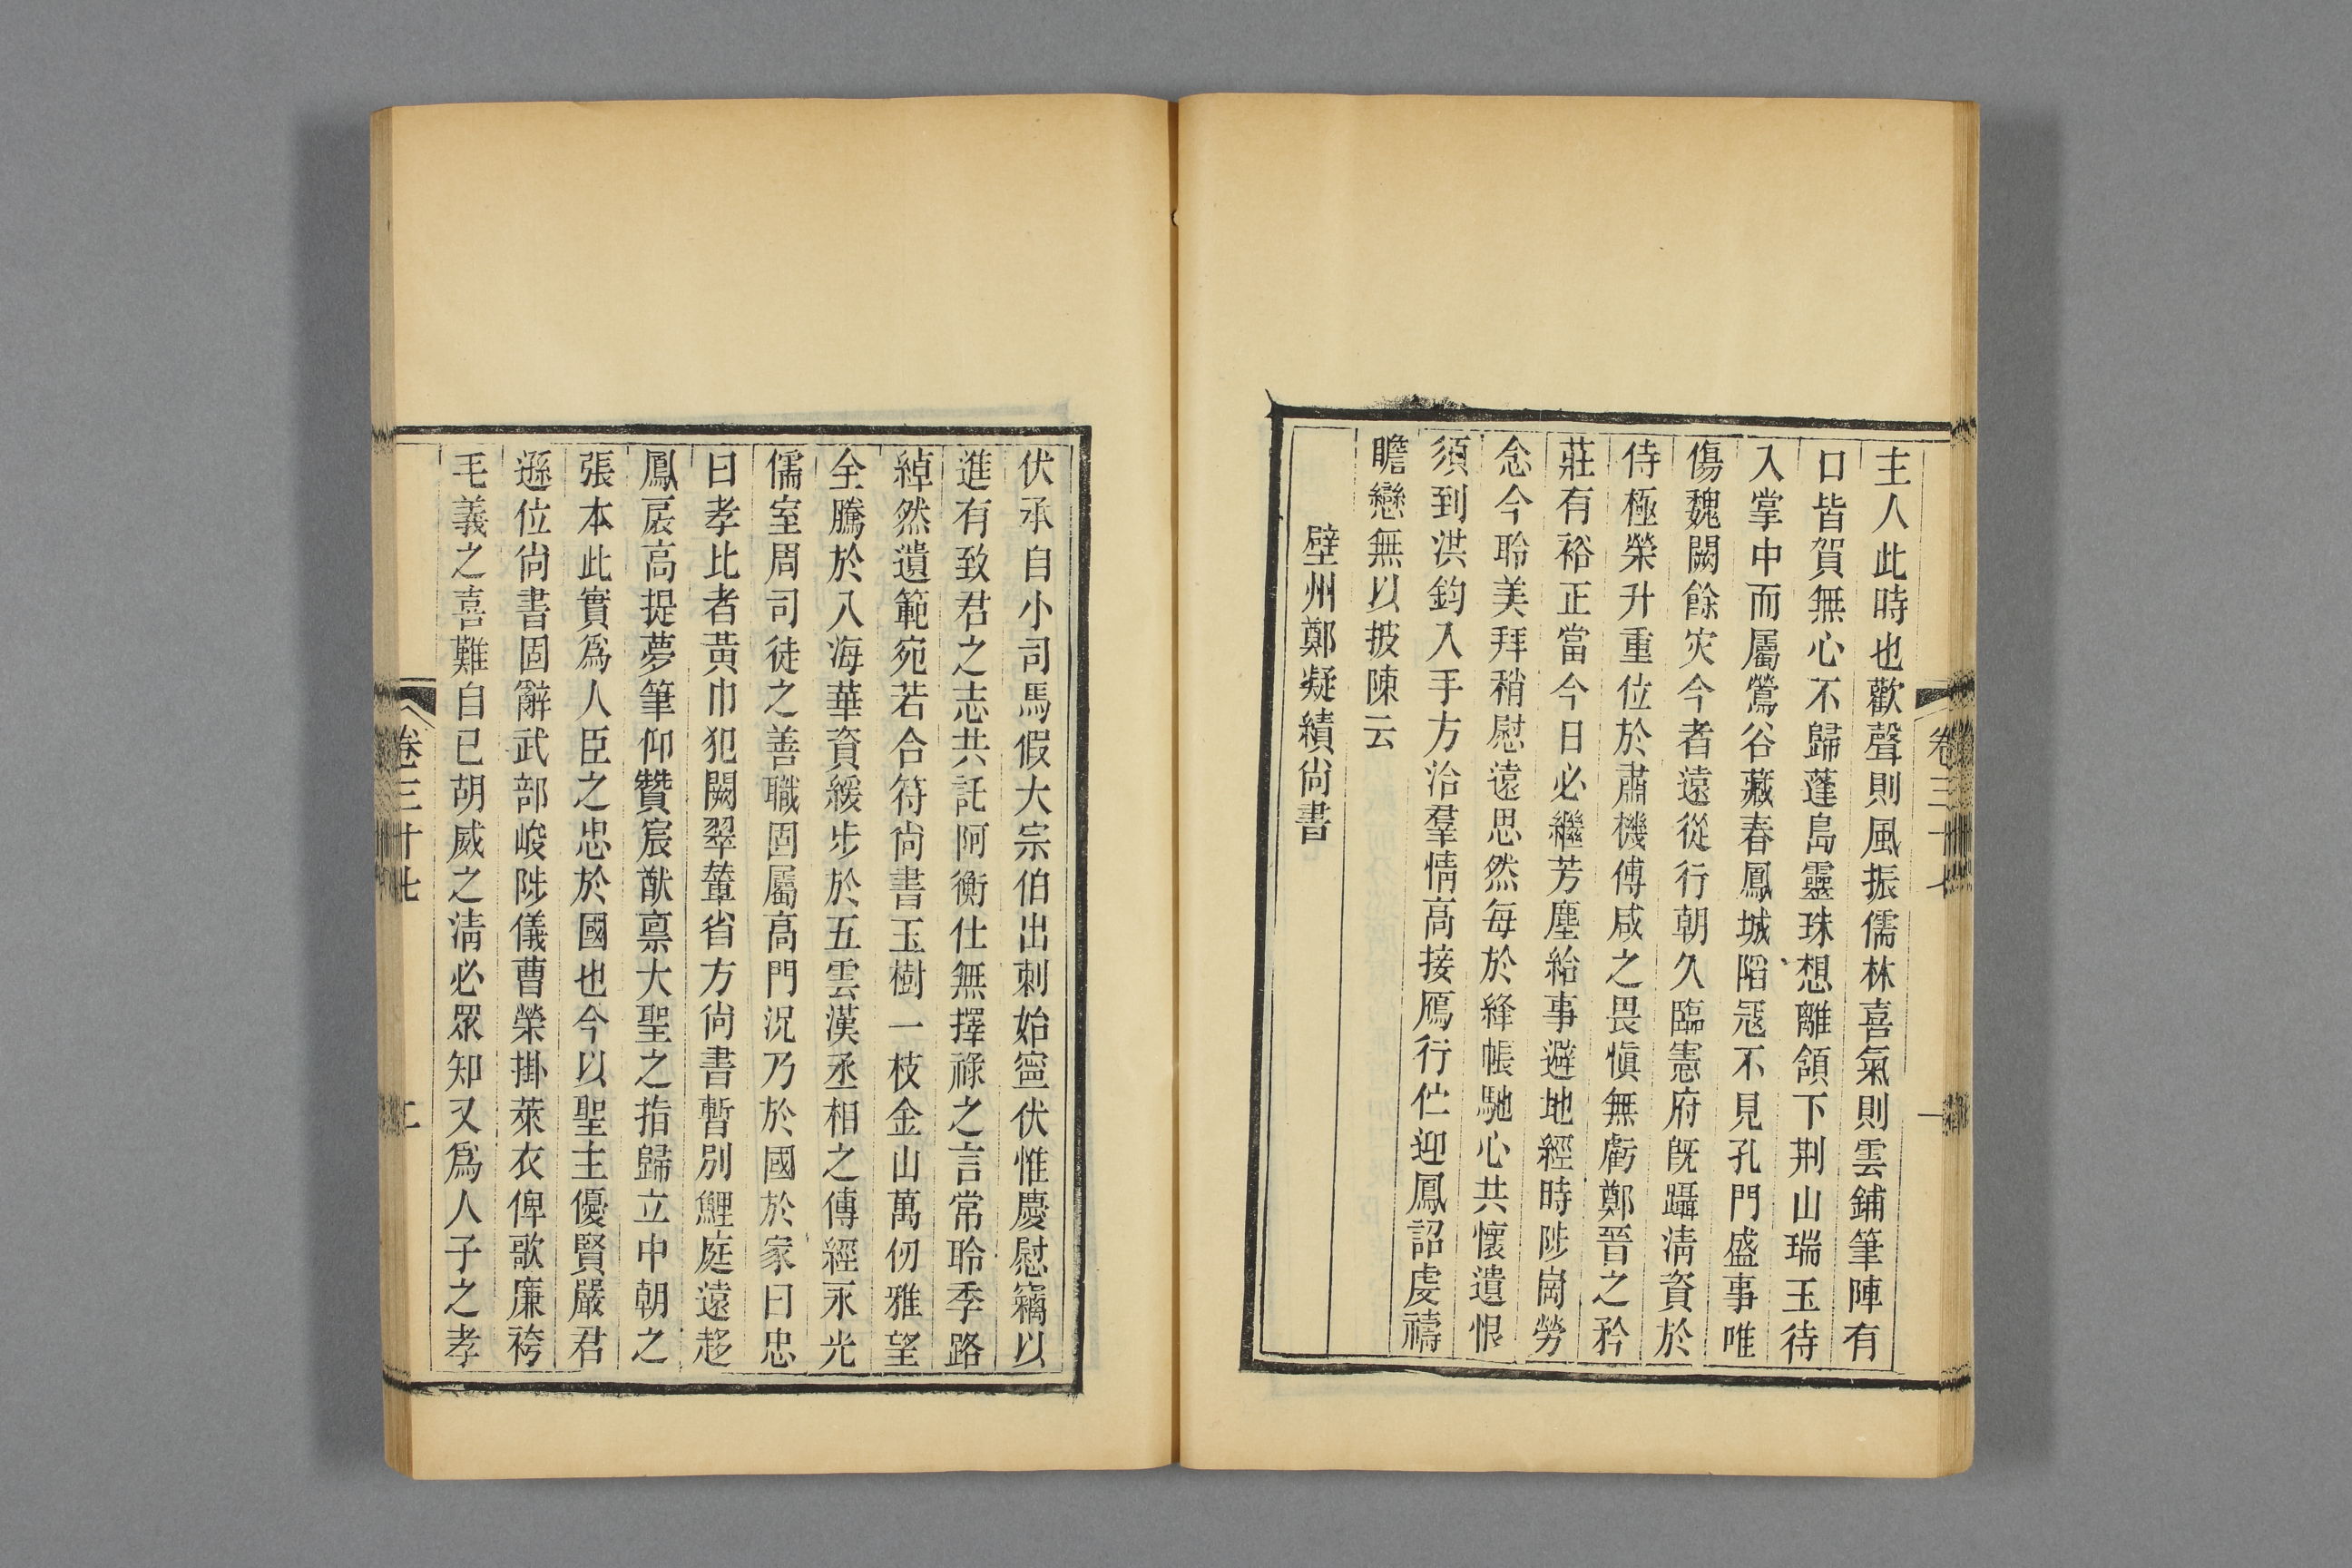 主人此時也歡聲則風振儒林喜氣則雲鋪筆陣有
口皆賀無心不歸蓬島靈珠想離頷下荆山瑞玉待
入掌中而屬鶯谷藏春鳳城陷冦不見孔門盛事唯
傷魏闕餘灾今者遠從行朝久臨憲府旣躡淸資於
侍極榮升重位於肅機傅咸之畏愼無虧鄭晉之矜
莊有裕正當今日必繼芳塵給事避地經時陟崗勞
念今聆美拜稍慰遠思然每於絳帳馳心共懷遺恨
須到洪鈞入手方洽羣情高接鴈行伫迎鳳詔虔禱
瞻戀無以披陳云
壁州鄭凝績尙書
卷三十七
一
伏承自小司馬假大宗伯出刺始寧伏惟慶慰竊以
進有致君之志共託阿衡仕無擇祿之言常聆季路
綽然遺範宛若合符尙書玉樹一枝金山萬仞雅望
全騰於入海華資緩步於五雲漢丞相之傳經永光
儒室周司徒之善職固屬高門況乃於國於家曰忠
曰孝比者黃巾犯闕翠輦省方尙書暫別鯉庭遠趍
鳳扆高提夢筆仰贊宸猷禀大聖之指歸立中朝之
張本此實爲人臣之忠於國也今以聖主優賢嚴君
遜位尙書固辭武部峻陟儀曹榮掛萊衣俾歌廉袴
毛義之喜難自已胡威之淸必眾知又爲人子之孝
卷三十七
二